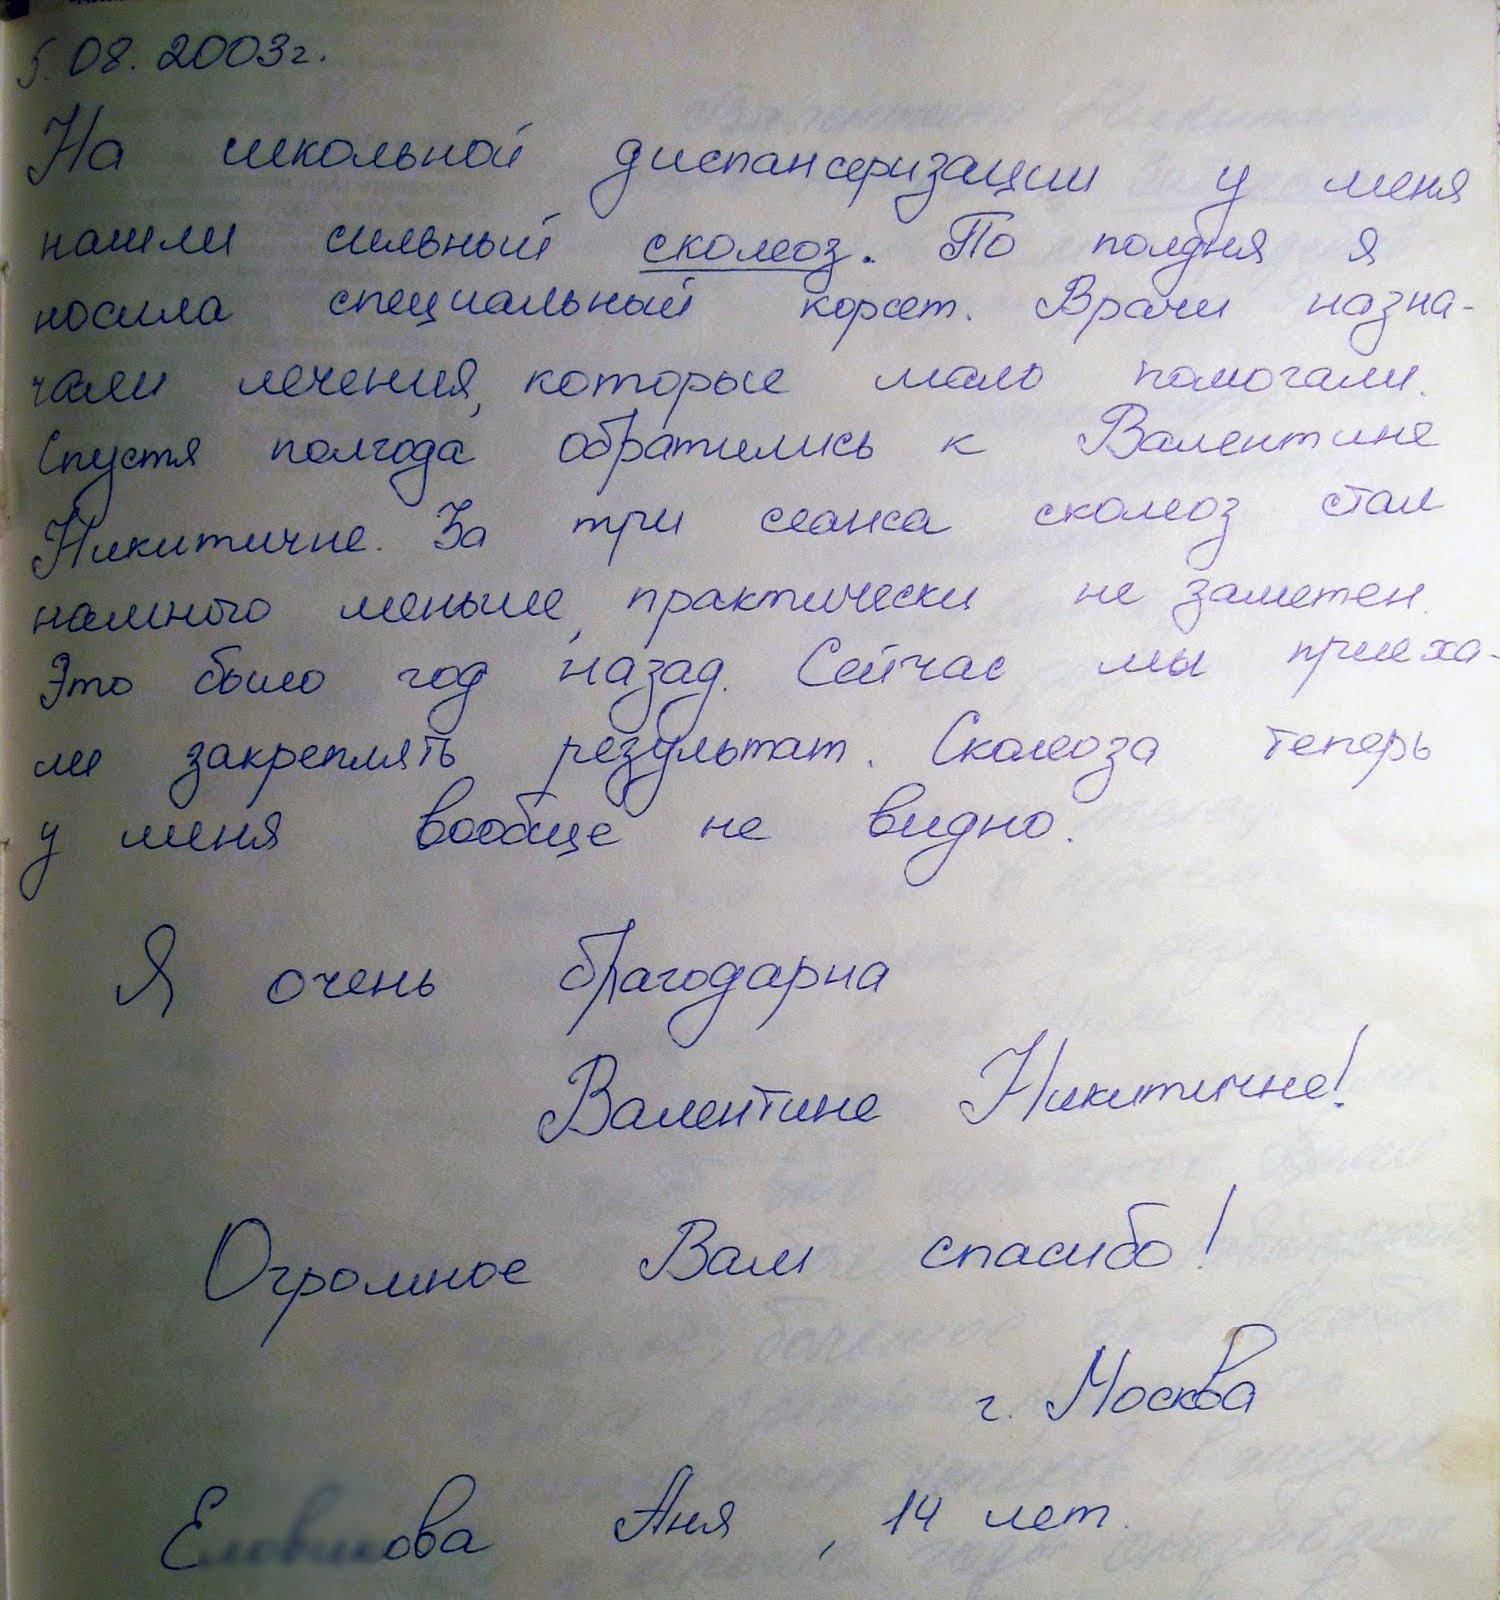 5.08.2003г.
На школьной диспансеризации у меня
нашли сильный сколеоз. По полдня я
носила специальный корсет. Врачи назна-
чали лечения, которые мало помогали.
Спустя полгода обратились к Валентине
Никитичне. За три сеанса сколеоз стал
намного меньше, практически не заметен.
Это было год назад. Сейчас мы приеха-
ли закреплять результат. Сколеоза теперь
у меня вообще не видно.
Я очень благодарна
Валентине Никитичне!
Огромное Вам спасибо!
г. Москва
Аня, 14 лет.